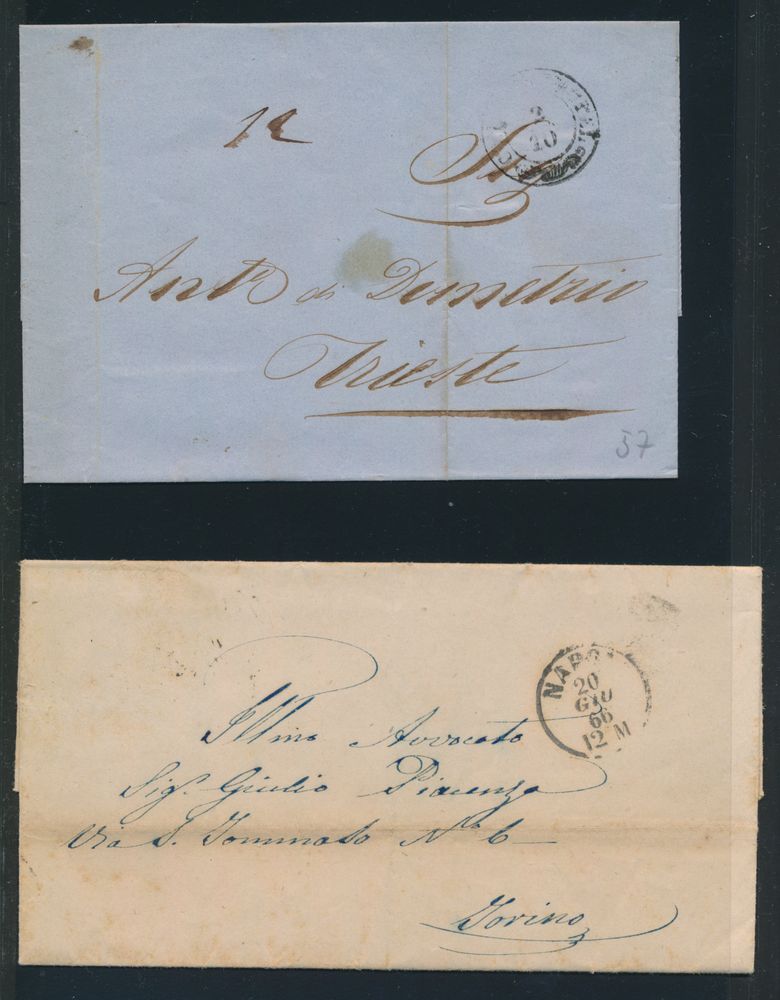 12
3
10
Sr
Ant° di Demetrio
Trieste
57
NAPO
20
GIU
66
12 M
Illmo Avvocato
Sigr. Giulio Piacenza
Via S. Tommaso N° 6
Torino